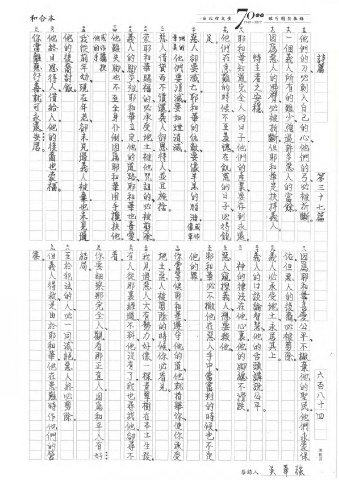 和合本
70
詩篇
第三十七篇
六百八十四
他們的刀必刺入自己的心他們的弓必被折斷
一個義人所有的雖少強過許多惡人的富餘
因為惡人的膀臂必被折斷但耶和華是扶持義人
耶和華知道完全人的日子他們的產業要存到永遠
他們在急難的時候不至羞愧在飢荒的日子必得飽
足
惡人卻要滅亡耶和華的仇敵要像羊羔的脂油
他們要消滅要如煙消滅
惡人借貸而不償還義人卻恩待人並且施捨
蒙耶和華賜福的必承受地土被他咒詛的必被剪除
義人的腳步被耶和華立定他的道路耶和華也喜愛
他雖失腳也不至全身仆倒因為耶和華用手攙扶他
我從前年幼現在年老卻未見過義人被棄也未見過
他的後裔討飯
他終日恩待人借給人他的後裔也蒙福
你當離惡行善就可永遠安居
因為耶和華喜愛公平不撇棄他的聖民他們永蒙保
佑但惡人的後裔必被剪除
義人必承受地土永居其上
義人的口談論智慧他的舌頭講說公平
神的律法在他心裏他的腳總不滑跌
惡人窺探義人想要殺他
耶和華必不撇他在惡人手中當審判的時候也不定
他的罪
你當等候耶和華遵守他的道他就抬舉你使你承受
地土惡人被剪除的時候你必看見
我見過惡人大有勢力好像一根青翠樹在本土生發
有人從那裏經過不料他沒有了我也尋找他卻尋不
著
你要細察那完全人觀看那正直人因為和平人有好
結局
至於犯法的人必一同滅絕惡人終必剪除
但義人得救是由於耶和華他在患難時作他們的營
寨